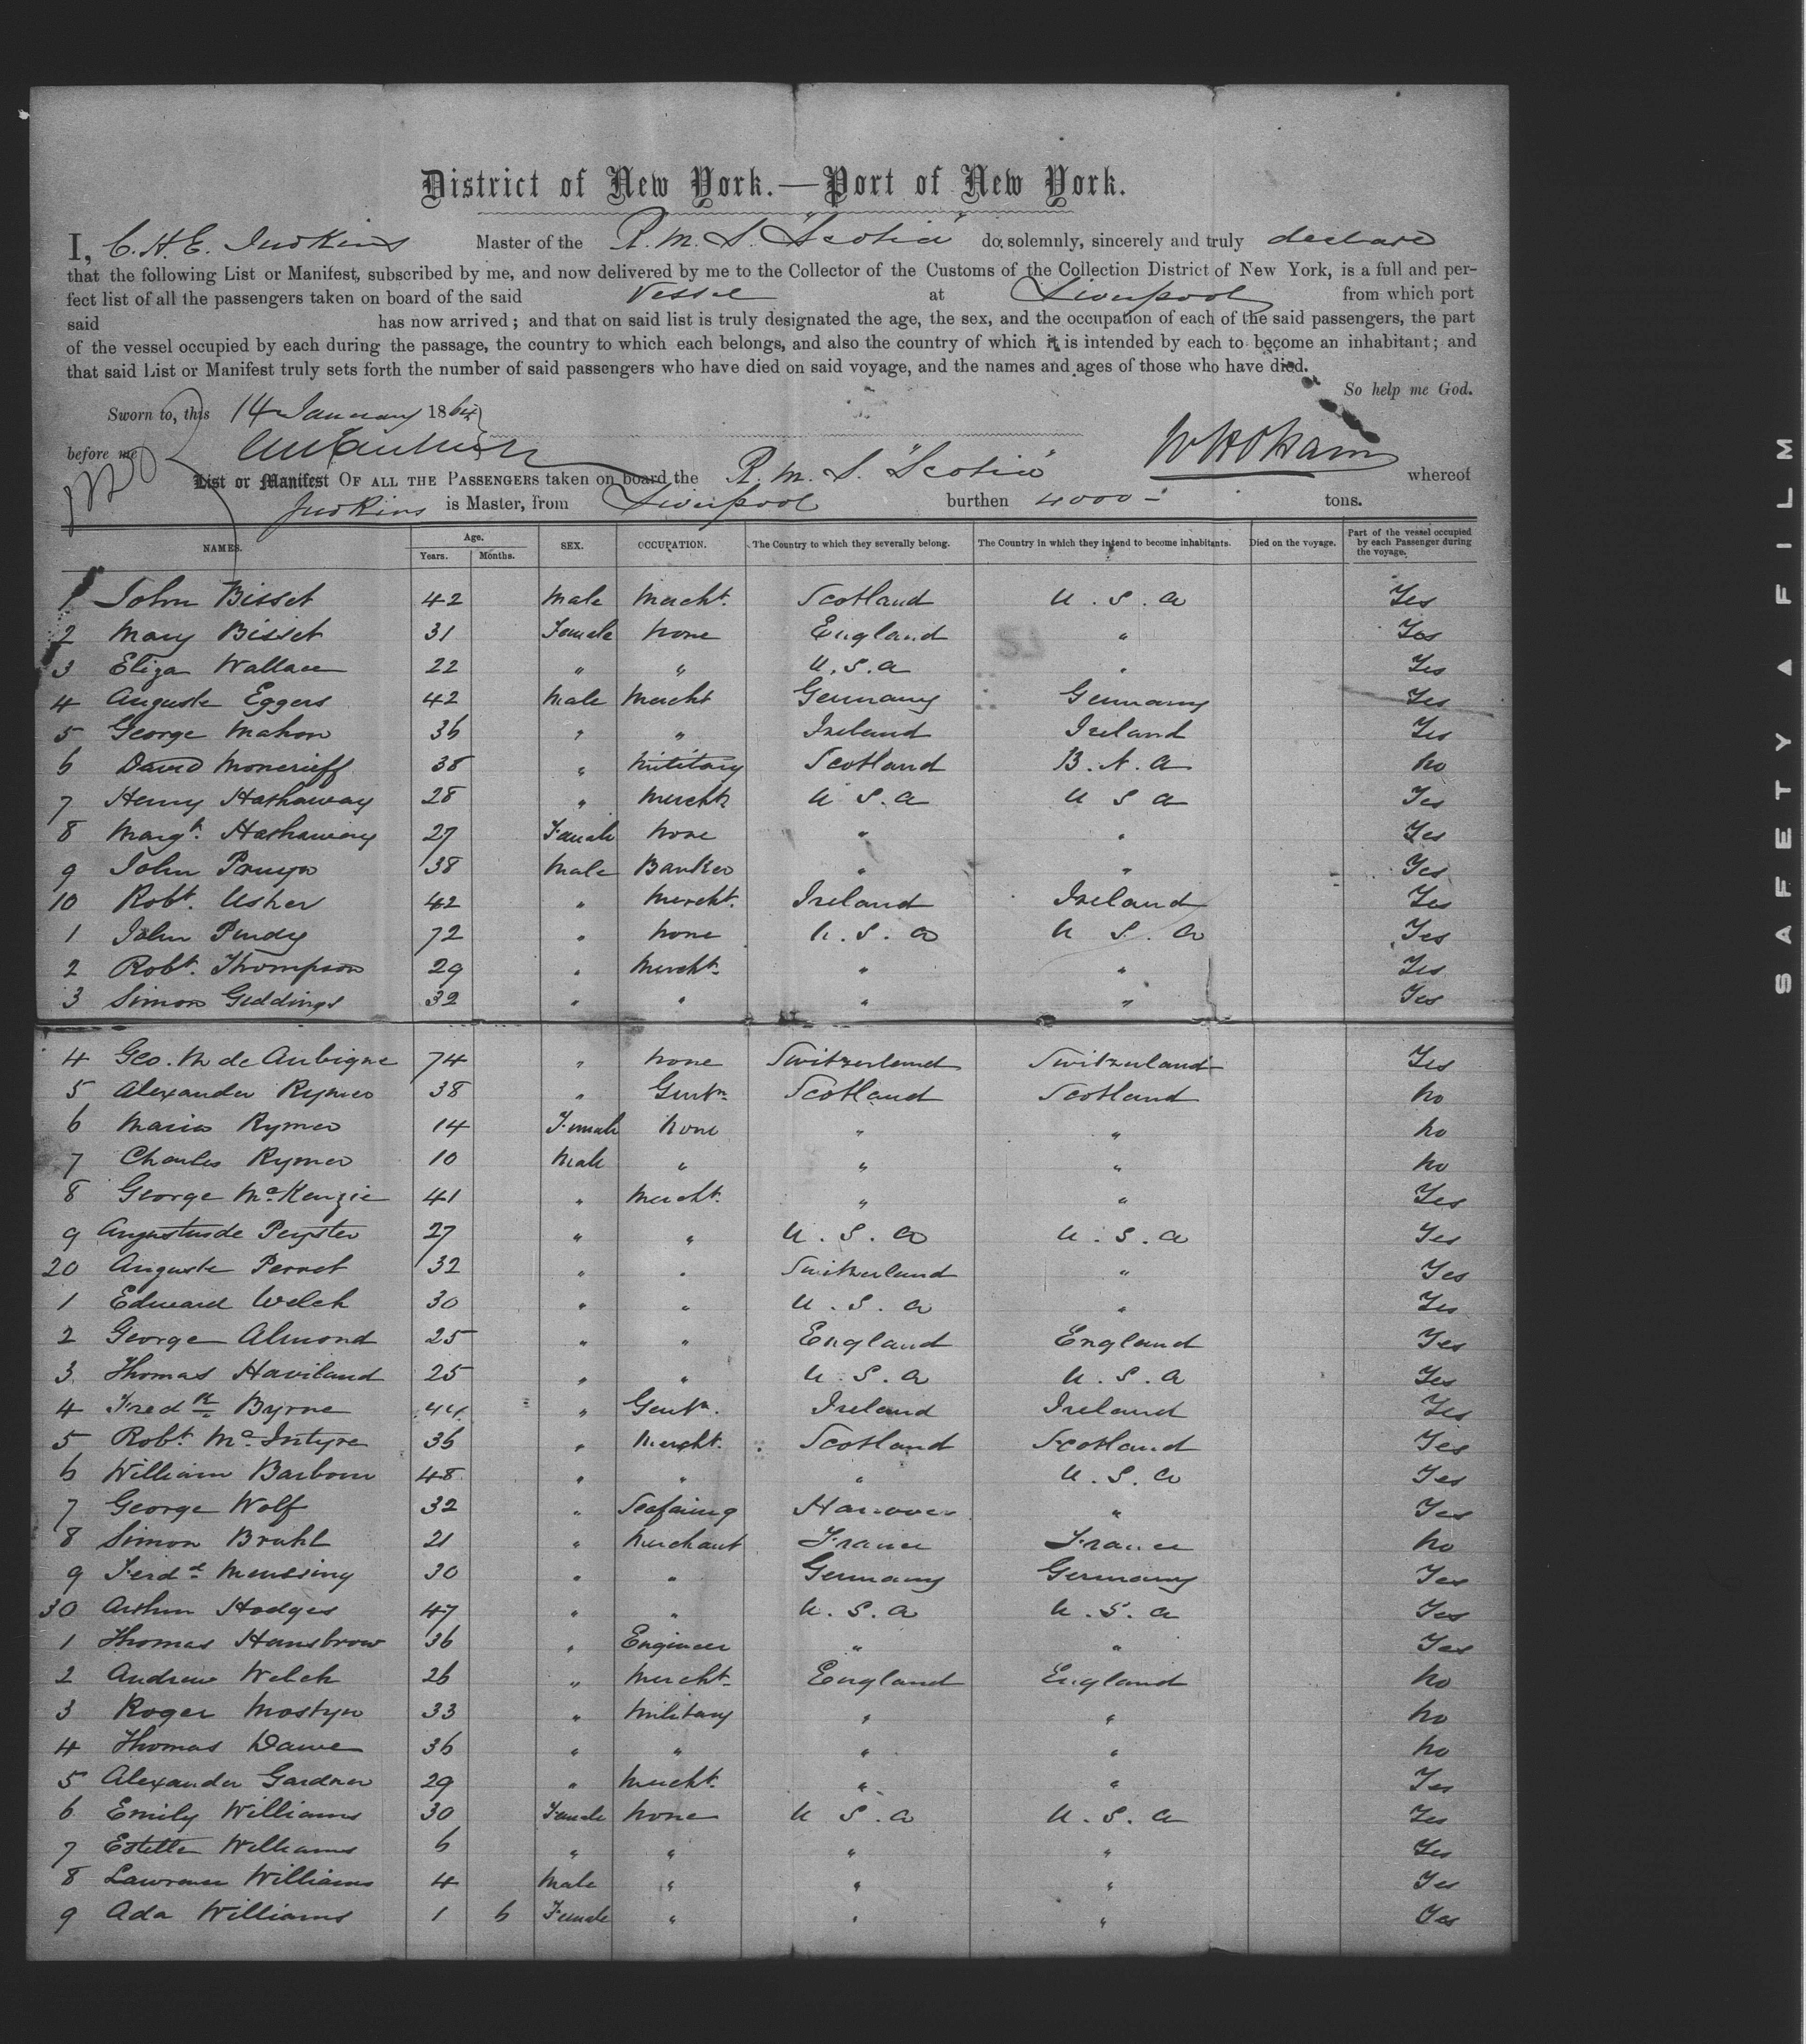 District of New York.—Port of New York.
I, C. H. E. Judkins Master of the R. M. S. "Scotia" do solemnly, sincerely and truly declare
that the following List or Manifest, subscribed by me, and now delivered by me to the Collector of the Customs of the Collection District of New York, is a full and per-
fect list of all the passengers taken on board of the said Vessel at Liverpool from which port
said has now arrived; and that on said list is truly designated the age, the sex, and the occupation of each of the said passengers, the part
of the vessel occupied by each during the passage, the country to which each belongs, and also the country of which it is intended by each to become an inhabitant; and
that said List or Manifest truly sets forth the number of said passengers who have died on said voyage, and the names and ages of those who have died.
So help me God.
Sworn to, this 14 January 1864
before me
List or Manifest OF ALL THE PASSENGERS taken on board the R. M. S. "Scotia" whereof
Judkins is Master, from Liverpool burthen 4000 - tons.
NAMES. Age. Years. Months. SEX. OCCUPATION. The Country to which they severally belong. The Country in which they intend to become inhabitants. Died on the voyage. Part of the vessel occupied by each Passenger during the voyage.
1 John Bisset 42 Male Mercht. Scotland U. S. A Yes
2 Mary Bisset 31 Female None England " Yes
3 Eliza Wallace 22 " " U. S. A " Yes
4 Auguste Eggers 42 Male Mercht Germany Germany Yes
5 George Mahon 36 " " Ireland Ireland Yes
6 David Moncrieff 38 " Military Scotland B. N. A No
7 Henry Hathaway 28 " Mercht U S. A U S A Yes
8 Margt. Hathaway 27 Female None " " Yes
9 John 38 Male Banker " " Yes
10 Robt. Usher 42 " Mercht. Ireland Ireland Yes
1 John Purdy 72 " None U. S. A U S. A Yes
2 Robt. Thompson 29 " Mercht. " " Yes
3 Simon Giddings 32 " " " " Yes
4 Geo. M de Aubigne 74 " None Switzerland Switzerland Yes
5 Alexander Rymer 38 " Gentn. Scotland Scotland No
6 Maria Rymer 14 Female None " " No
7 Charles Rymer 10 Male " " " No
8 George McKenzie 41 " Mercht. " " Yes
9 Augustus de Peyster 27 " " U. S. A U. S. A Yes
20 Auguste Perret 32 " " Switzerland " Yes
1 Edward Welch 30 " " U. S. A " Yes
2 George Almond 25 " " England England Yes
3 Thomas Haviland 25 " " U. S. A U. S. A Yes
4 Fredk Byrne 44 " Gentn. Ireland Ireland Yes
5 Robt. McIntyre 36 " Mercht. Scotland Scotland Yes
6 William Barbour 48 " " " U. S. A Yes
7 George Wolf 32 " Seafaring Hanover " Yes
8 Simon Bruhl 21 " Merchant France France No
9 Ferdd Meussing 30 " " Germany Germany Yes
30 Arthur Hodges 47 " " U. S. A U. S. A Yes
1 Thomas Hansbrow 36 " Engineer " " Yes
2 Andrew Welch 26 " Mercht. England England No
3 Roger Mostyn 33 " Military " " No
4 Thomas Dawe 36 " " " " No
5 Alexander Gardner 29 " Mercht. " " Yes
6 Emily Williams 30 Female None U S. A U. S. A Yes
7 Estelle Williams 6 " " " " Yes
8 Lawrence Williams 4 Male " " " Yes
9 Ada Williams 1 6 Female " " " Yes
SAFETY A FILM